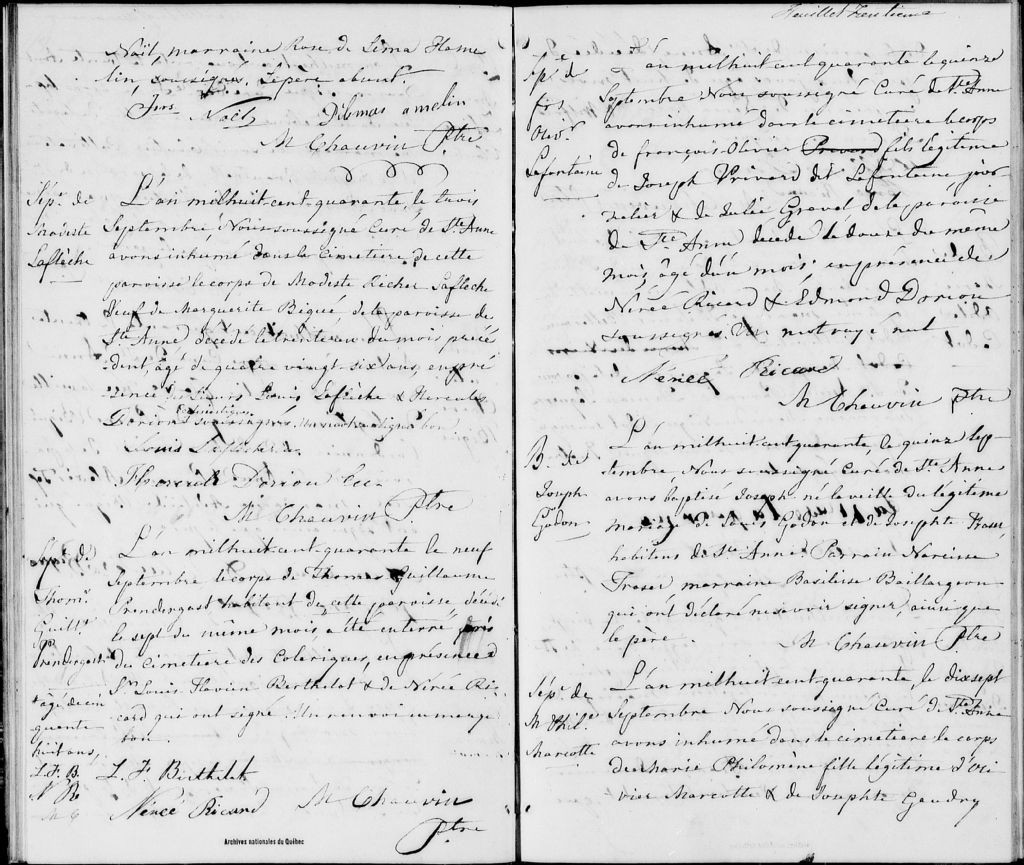 Noël, marraine Rose de Lima Hame
lin, soussignés, le père absent.
Frs Noël Dilimas amelin
M Chauvin Ptre
Sépre de
Modeste
Laflèche
L'an mil huit-cent-quarante, le trois
Septembre, Nous soussigné Curé de Ste Anne
avons inhumé dans le cimetière de cette
paroisse le corps de Modeste Richer Laflèche
veuf de Marguerite Bigué, de la paroisse de
Ste Anne décédé le trente et un du mois précé
dent, âgé de quatre vingt-six ans, en pré
sence de Sieurs Louis Laflèche & Hercules
Dorion soussignés. Un mot en ligne bon
Louis Laflèche
Dorion Ecr
M Chauvin Ptre
Sépre de
Thoms
Guillme
Prendergast
L'an mil huit-cent-quarante le neuf
Septembre le corps de Thomas Guillaume
Prendergast habitant de cette paroisse, décédé
le sept du même mois a été enterré près
du cimetière des Coleriques, en présence de
Sr Louis Flavien Berthelot & de Nérée Ri-
card qui ont signé. Un renvoi en marge
bon.
+ âgé de cin
quante
huit ans,
L. F. B.
N R
M C
L. F. Berthelot
Nérée Ricard M Chauvin
Ptre
Archives nationales du Québec
Feuillet Trentieme
Sépre de
frs
Olivr
Lafontaine
L'an mil huit cent quarante le quinze
Septembre Nous soussigné Curé de Ste Anne
avons inhumé dans le cimetière le corps
de françois Olivier fils légitime
de Joseph Privard dit Lafontaine jour
nalier & de Julie Gravel de la paroisse
de Ste Anne décédé le douze du même
mois, âgé d'un mois, en présence de
Nérée Ricard & Edmond Dorion
soussignés. Un mot rayé nul
Nérée Ricard
M Chauvin Ptre
B. de
Joseph
Godon
L'an mil huit-cent-quarante, le quinze Sep-
tembre, Nous soussigné Curé de Ste Anne
avons baptisé Joseph né la veille du légitime
mariage de Louis Godon et de Josephte Fraser
habitens de Ste Anne. Parrain Narcisse
Fraser marraine Basilisse Baillargeon
qui ont déclaré ne savoir signer ainsi que
le père.
M Chauvin Ptre
Sépre de
M Phile
Marcotte
L'an mil huit-cent-quarante, le dix sept
Septembre Nous soussigné Curé de Ste Anne
avons inhumé dans le cimetière le corps
de Marie Philomène fille légitime d'Oli
vier Marcotte & de Josephte Gaudry